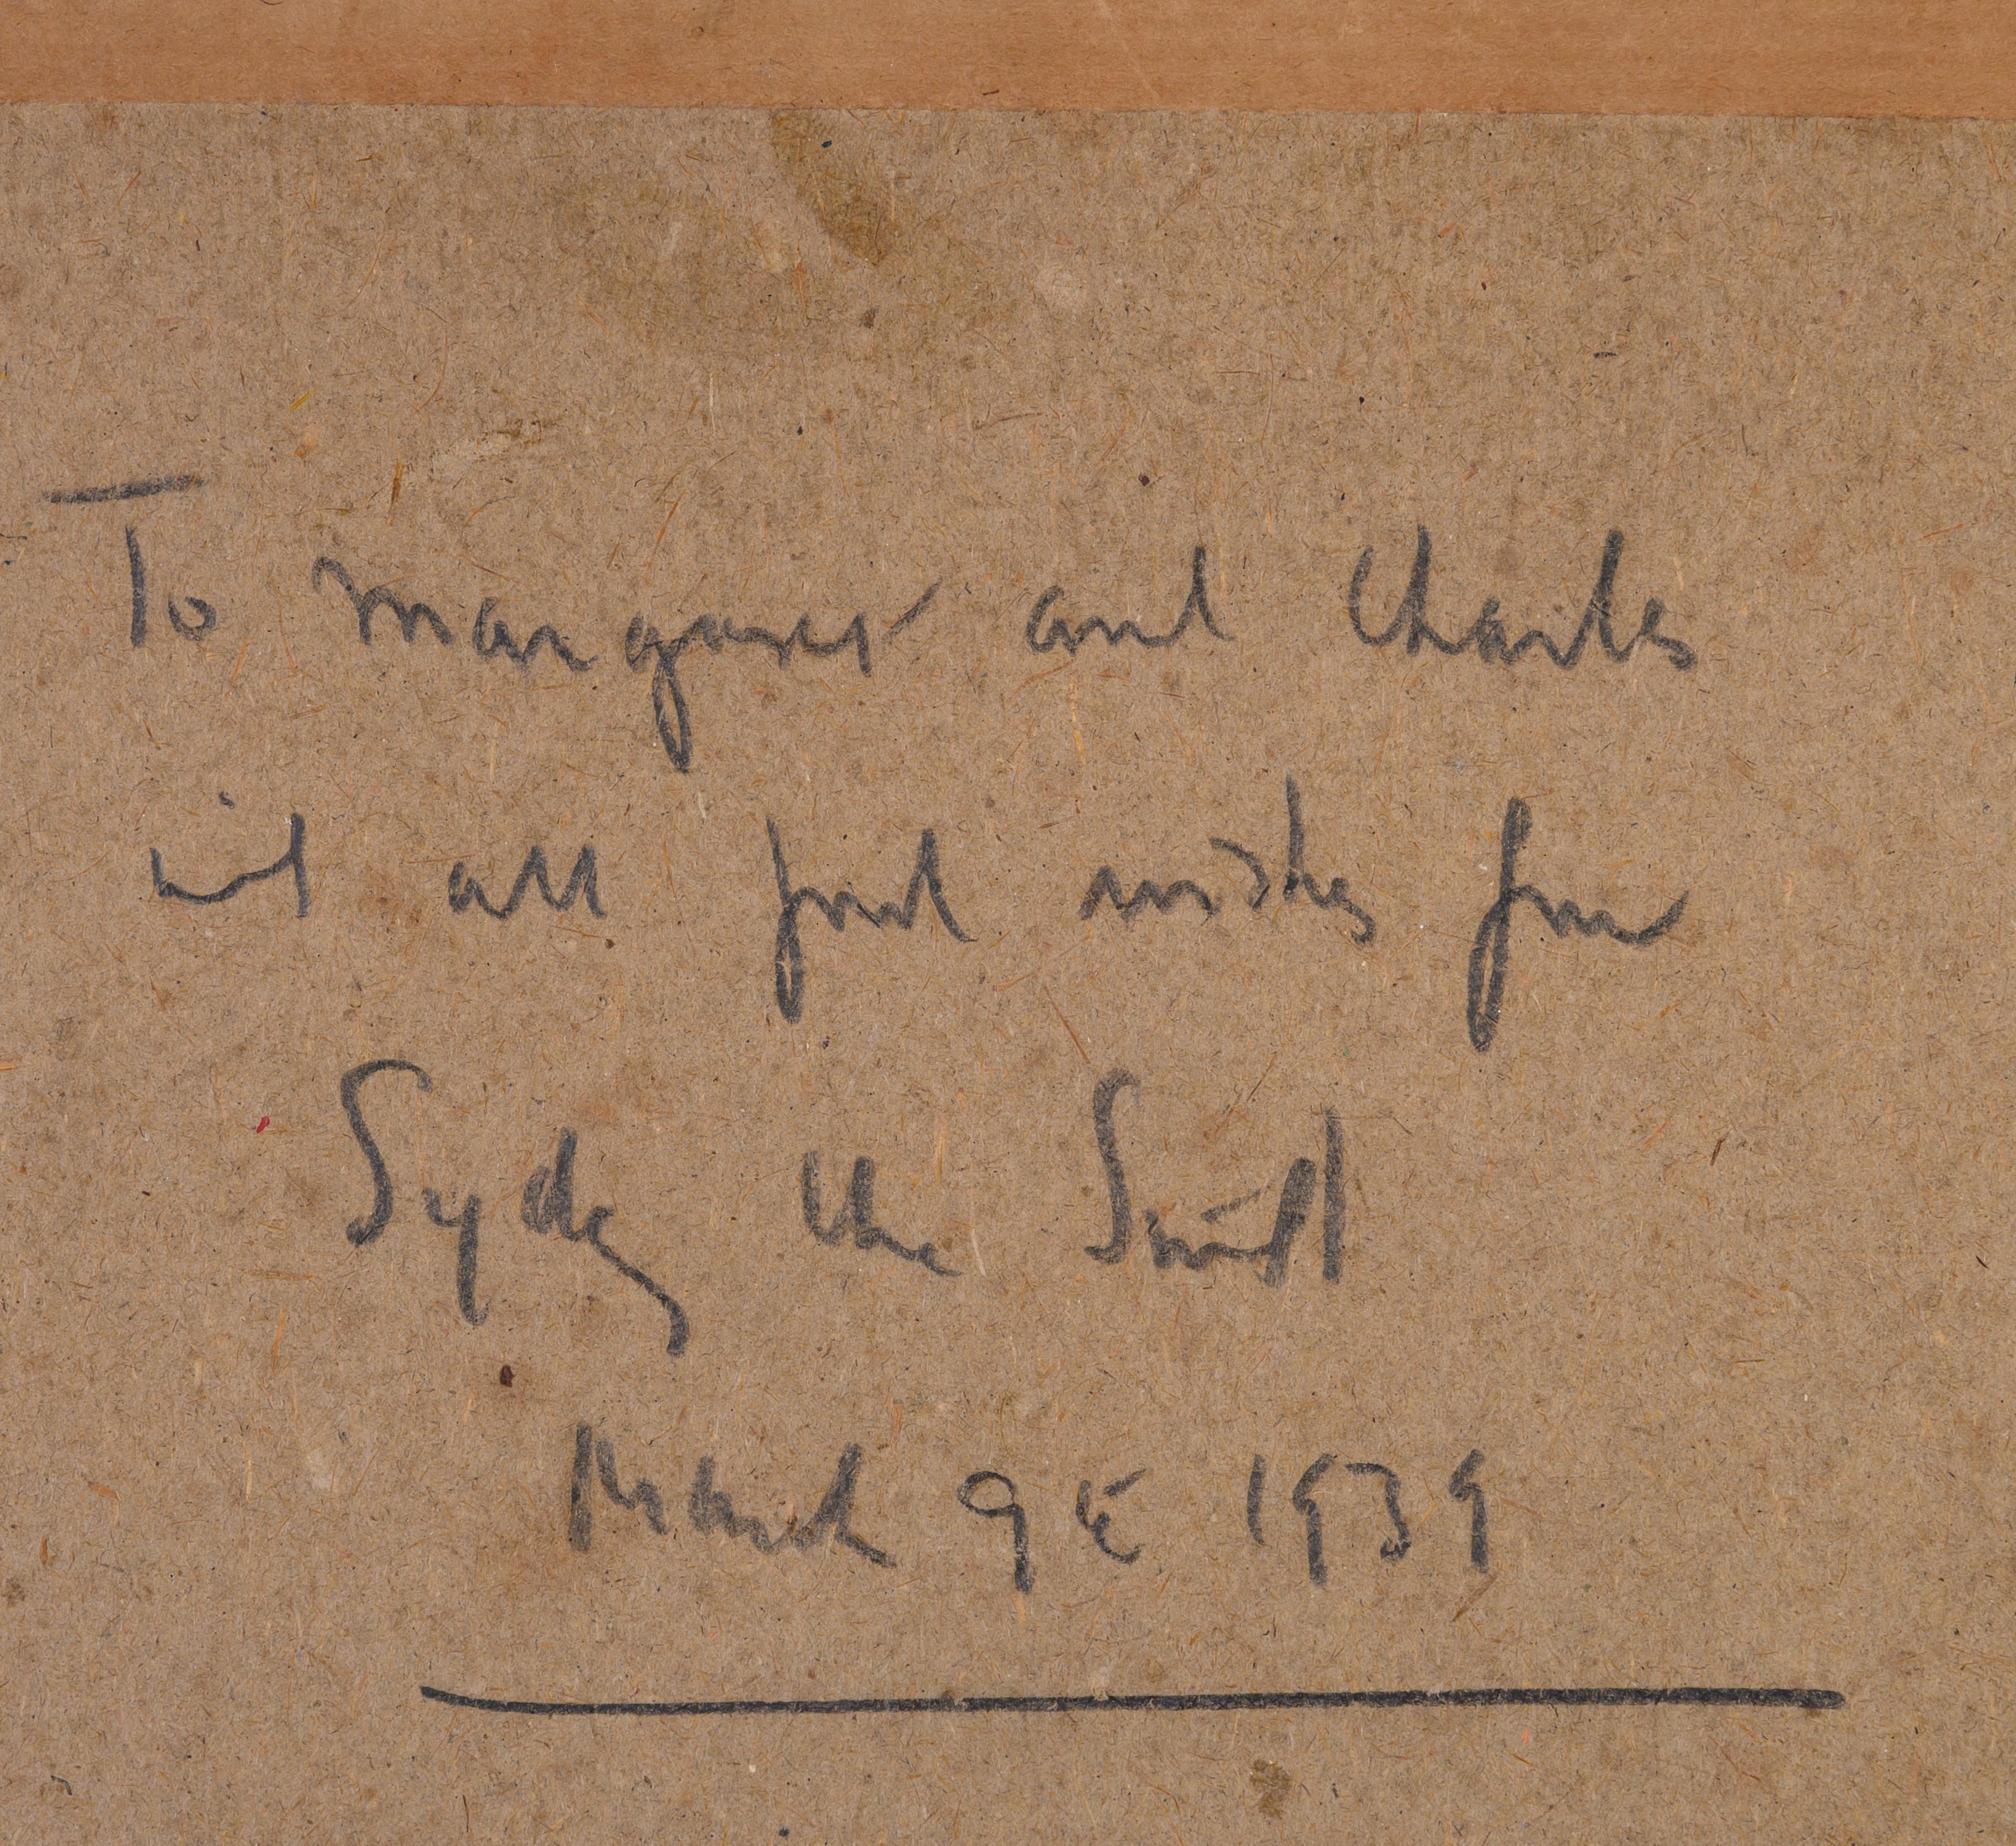 To Margaret and Charles
with all fond wishes from
Sydney the
March 9th 1939